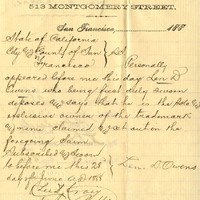 513 MONTGOMERY STREET.
San Francisco, 188
State of California
City & County of San } S.S.
Francisco
Personally
appeared before me this day Len D.
Owens who being first duly sworn
deposes & says that he is the sole &
exclusive owner of the trademark
& name claimed & set out in the
foregoing claim
Subscribed & sworn
to before me this 28
day of June A.D. 1888
Len D. Owens
Lee D. Craig